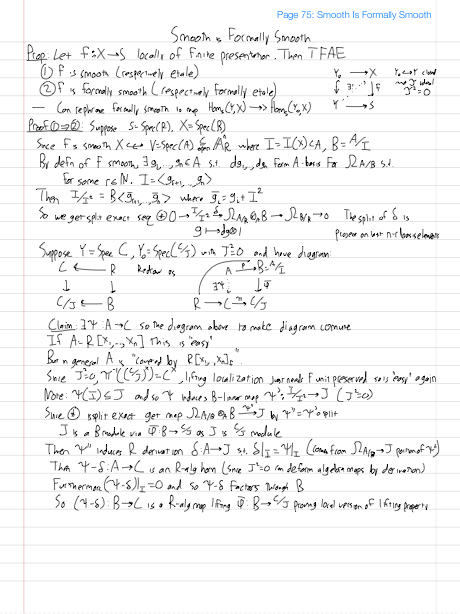 Page 75: Smooth Is Formally Smooth
Smooth is Formally Smooth
Prop: Let f: X → S locally of finite presentation. Then TFAE
① f is smooth (respectively etale)
② f is formally smooth (respectively formally etale)
— Can rephrase formally smooth is map Hom_S(Y,X) ->> Hom_S(Y₀,X)
Y₀ → X
↓ ∃ ↓ f
Y → S
Y₀ ↪ Y closed
ideal
J²=0
Proof ①⇒②: Suppose S=Spec(R), X=Spec(B)
Since f is smooth X ↪ V=Spec(A) ⊆ open A^n_R where I=I(X)<A, B=A/I
By defn of f smooth, ∃ g₁,...,gₙ∈A s.t. dg₁,...,dgₙ form A-basis for Ω_A/R s.t.
for some r∈N, I=<g_{r+1},...,gₙ>
Then I/I² = B<ḡ_{r+1},...,ḡₙ> where ḡᵢ=gᵢ+I²
So we get split exact seq ⊕ 0→I/I² →δ Ω_A/R ⊗_A B → Ω_B/R → 0 The split of δ is
g ↦ dg⊗1 project on last n-r basis elements
Suppose Y=Spec C, Y₀=Spec(C/J) with J²=0 and have diagram
C ← R Redraw as A →p B=A/I
↓ ↓ ∃Ψ ↓φ̄
C/J ← B R → C →π C/J
Claim: ∃Ψ: A→C so the diagram above to make diagram commute
If A=R[x₁,...,xₙ] this is "easy"
But in general A is "covered by R[x₁,...,xₙ]_f"
Since J²=0, π⁻¹((C/J)ˣ)=Cˣ, lifting localization just needs f unit preserved so is "easy" again
Note: Ψ(I)⊆J and so Ψ induces B-linear map Ψ': I/I²→J (J²=0)
Since ⊕ is split exact get map Ω_A/R ⊗_A B →Ψ'' J by Ψ''=Ψ'∘split
J is a B module via φ̄: B→C/J as J is C/J module
Then Ψ'' induces R derivation δ: A→J s.t. δ|_I=Ψ|_I
Then Ψ-δ: A→C is an R-alg hom (Since J²=0 can deform algebra maps by derivation)
Furthermore (Ψ-δ)|_I=0 and so Ψ-δ factors through B
So (Ψ-δ): B→C is a R-alg map lifting φ̄: B→C/J proving local version of lifting property